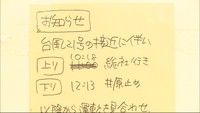 お知らせ
台風21号の接近に伴い
上り 10:18 総社行き
下り 12:13 井原止め
以降から運転を見合わせ